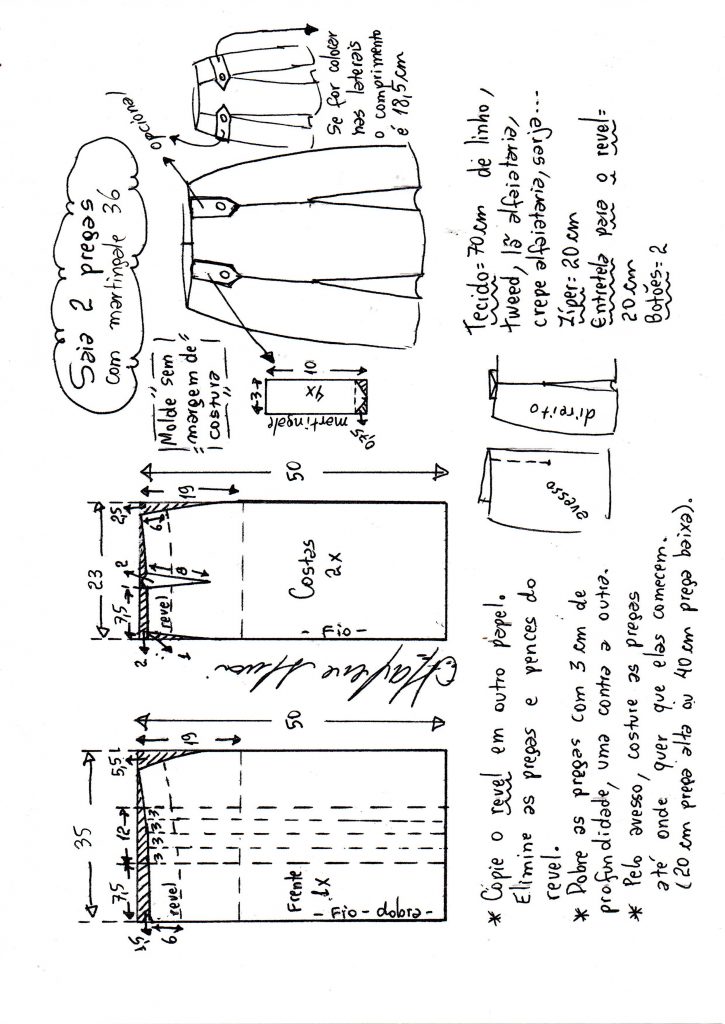 Saia 2 pregas
com martingale 36
opcional
Se for colocar
nas laterais
o comprimento
é 18,5 cm
"Molde sem"
"margem de"
"costura"
3
10
4x
martingale
0,75
35
7,5
12
5,5
3,5
3 3 3 3
6
revel
19
50
Frente
1x
- Fio - dobra -
Marlene Mukai
23
7,5
2
2,5
2
1
8
6
revel
19
50
Costas
2x
- Fio -
Tecido = 70 cm de linho,
tweed, lã alfaiataria,
crepe alfaiataria, sarja...
Zíper = 20 cm
Entretela para o revel =
20 cm
Botões = 2
avesso
direito
* Copie o revel em outro papel.
Elimine as pregas e pences do
revel.
* Dobre as pregas com 3 cm de
profundidade, uma contra a outra.
* Pelo avesso, costure as pregas
até onde quer que elas comecem.
(20 cm prega alta ou 40 cm prega baixa).